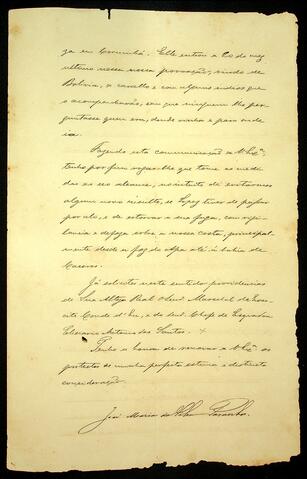 ja em Corumbá. Elle entrou a 20 do mez
ultimo nessa nossa povoação, vindo de
Bolivia, a cavallo e com alguns indios que
o acompanhavão, sem que ninguem lhe per
guntasse quem era, donde vinha e para onde
ia.
Fazendo esta communicação a V. Ex.ª
tenho por fim rogar-lhe que tome as medi
das ao seu alcance, no intuito de evitarmos
algum novo insulto, se Lopez tiver de passar
por ahi, e de estorvar a sua fuga, com vigi
lancia e defeza sobre a nossa costa, principal
mente desde a foz do Apa até á bahia de
Caceres.
Já solicitei neste sentido providencias
de Sua Alteza Real o Senr. Marechal de Exer
cito Conde d'Eu, e do Senr. Chefe de Esquadra
Elisiario Antonio dos Santos.
Tenho a honra de renovar a V. Ex.ª os
protestos de minha perfeita estima e distincta
consideração.
José Maria da Silva Paranhos.